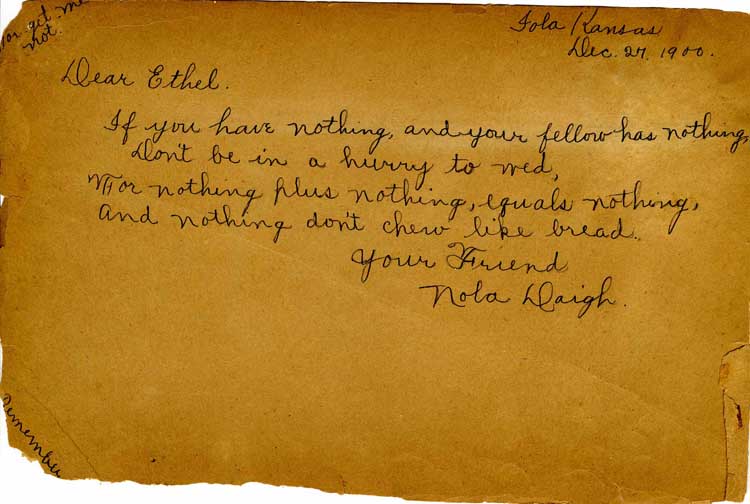 For get me
not.
Iola Kansas
Dec. 27, 1900.
Dear Ethel.
If you have nothing, and your fellow has nothing,
Don't be in a hurry to wed,
For nothing plus nothing, equals nothing,
And nothing don't chew like bread.
Your Friend
Nola Daigh.
Remember